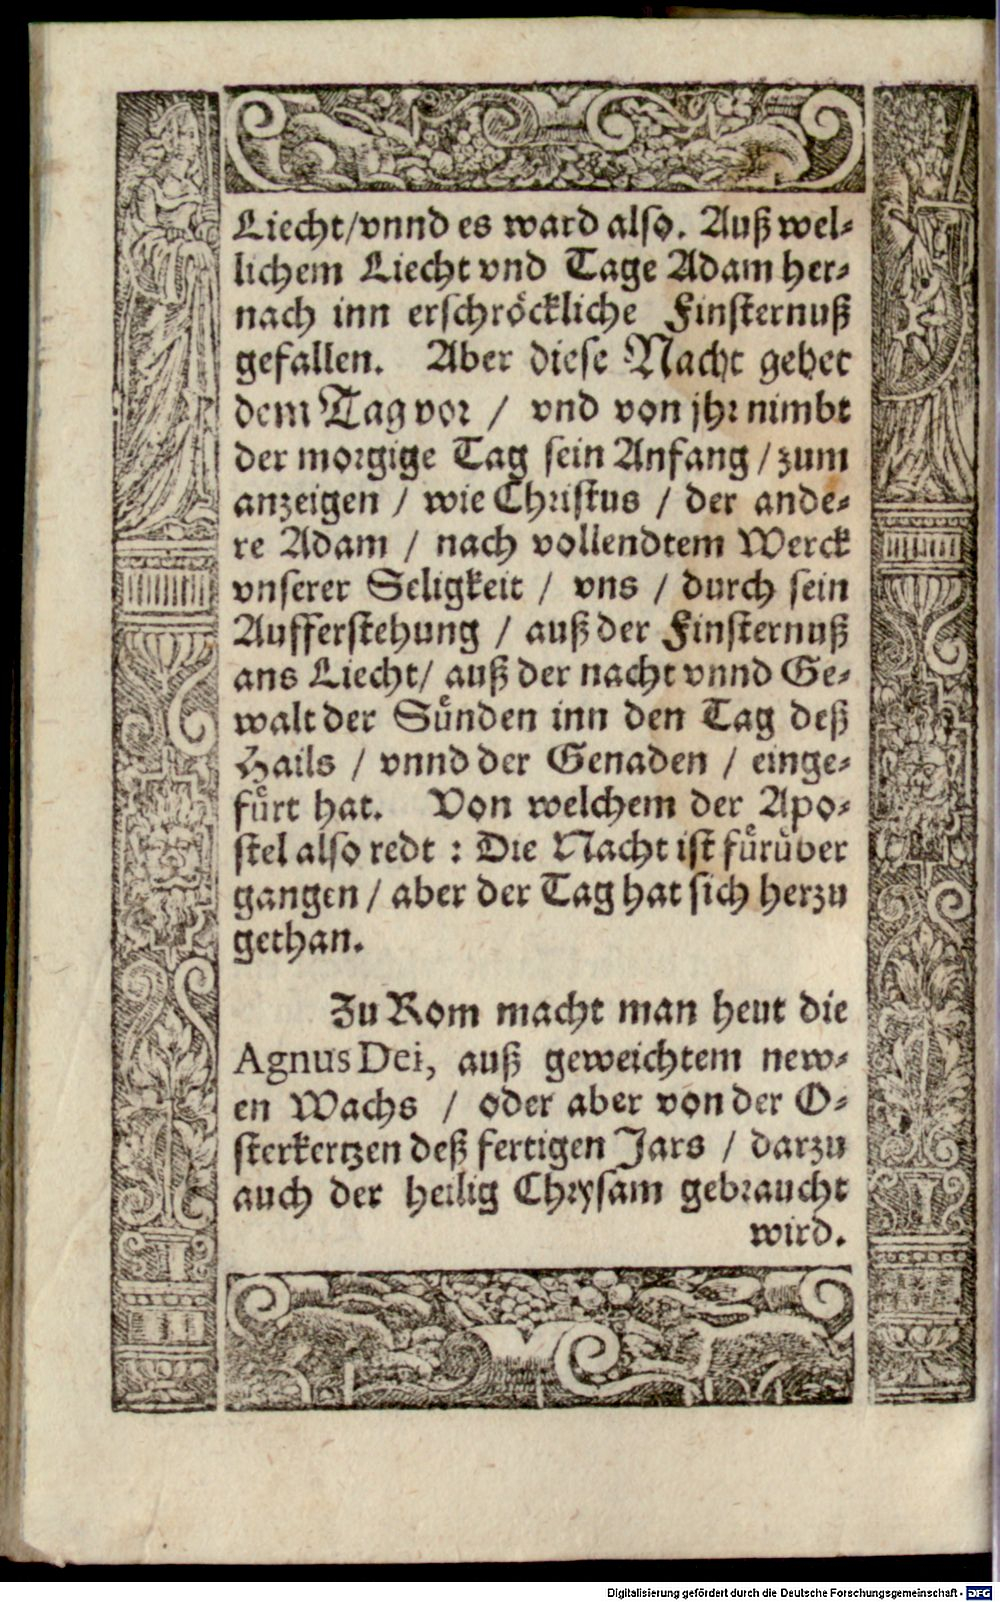 Liecht/vnnd es ward also. Auß wel-
lichem Liecht vnd Tage Adam her-
nach inn erschröckliche Finsternuß
gefallen. Aber diese Nacht gehet
dem Tag vor / vnd von jhr nimbt
der morgige Tag sein Anfang / zum
anzeigen / wie Christus / der ande-
re Adam / nach vollendtem Werck
vnserer Seligkeit / vns / durch sein
Aufferstehung / auß der Finsternuß
ans Liecht/ auß der nacht vnnd Ge-
walt der Sünden inn den Tag deß
Hails / vnnd der Genaden / einge-
fürt hat. Von welchem der Apo-
stel also redt : Die Nacht ist fürüber
gangen / aber der Tag hat sich herzu
gethan.
Zu Rom macht man heut die
Agnus Dei, auß geweichtem new-
en Wachs / oder aber von der O-
sterkertzen deß fertigen Jars / darzu
auch der heilig Chrysam gebraucht
wird.
Digitalisierung gefördert durch die Deutsche Forschungsgemeinschaft - DFG